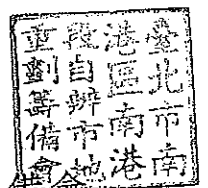 臺北市南
港區南港
段自辦市地
重劃籌備會